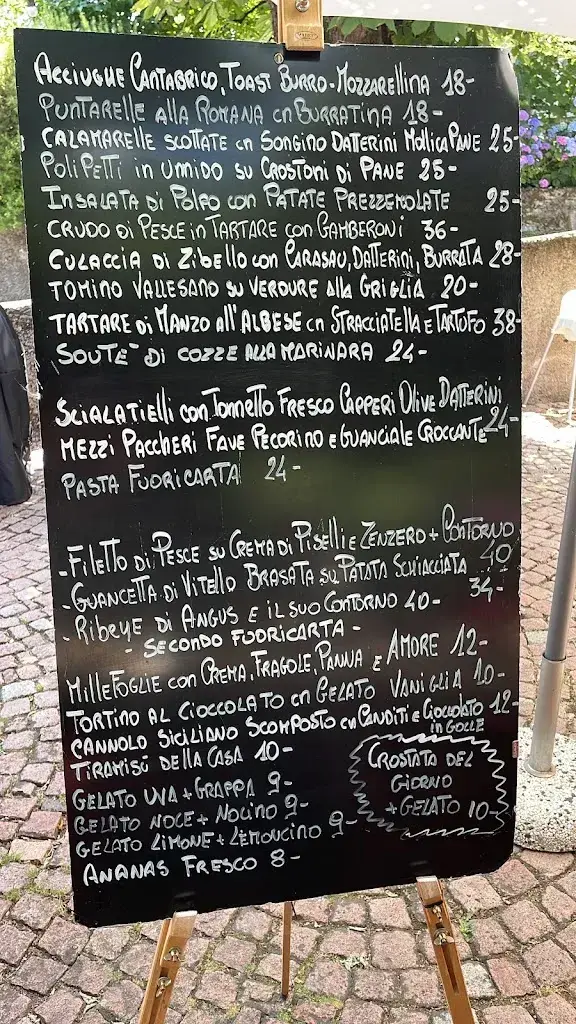 Acciughe Cantabrico, Toast Burro-Mozzarellina 18-
Puntarelle alla Romana cn Burratina 18-
Calamarelle scottate cn Songino Datterini Mollica Pane 25-
Polipetti in umido su Crostoni di Pane 25-
Insalata di Polpo con Patate Prezzemolate 25-
Crudo di Pesce in Tartare con Gamberoni 36-
Culaccia di Zibello con Carasau, Datterini, Burrata 28-
Tomino Vallesano su Verdure alla Griglia 20-
Tartare di Manzo all'Albese cn Stracciatella e Tartufo 38-
Soutè di cozze alla marinara 24-
Scialatielli con Tonnetto Fresco Capperi Olive Datterini
24-
Mezzi Paccheri Fave Pecorino e Guanciale Croccante
Pasta Fuoricarta 24-
-Filetto di Pesce su Crema di Piselli e Zenzero + Contorno
40
-Guancetta di Vitello Brasata su Patata Schiacciata
34-
-Ribeye di Angus e il suo Contorno 40-
- Secondo Fuoricarta -
Millefoglie con Crema, Fragole, Panna e Amore 12-
Tortino al Cioccolato cn Gelato Vaniglia 10-
Cannolo Siciliano Scomposto cn Canditi e Cioccolato 12-
in Gocce
Tiramisù della Casa 10-
Gelato Uva + Grappa 9-
Gelato Noce + Nocino 9-
Gelato Limone + Lemoncino 9-
Ananas Fresco 8-
Crostata del
Giorno
+ Gelato 10-